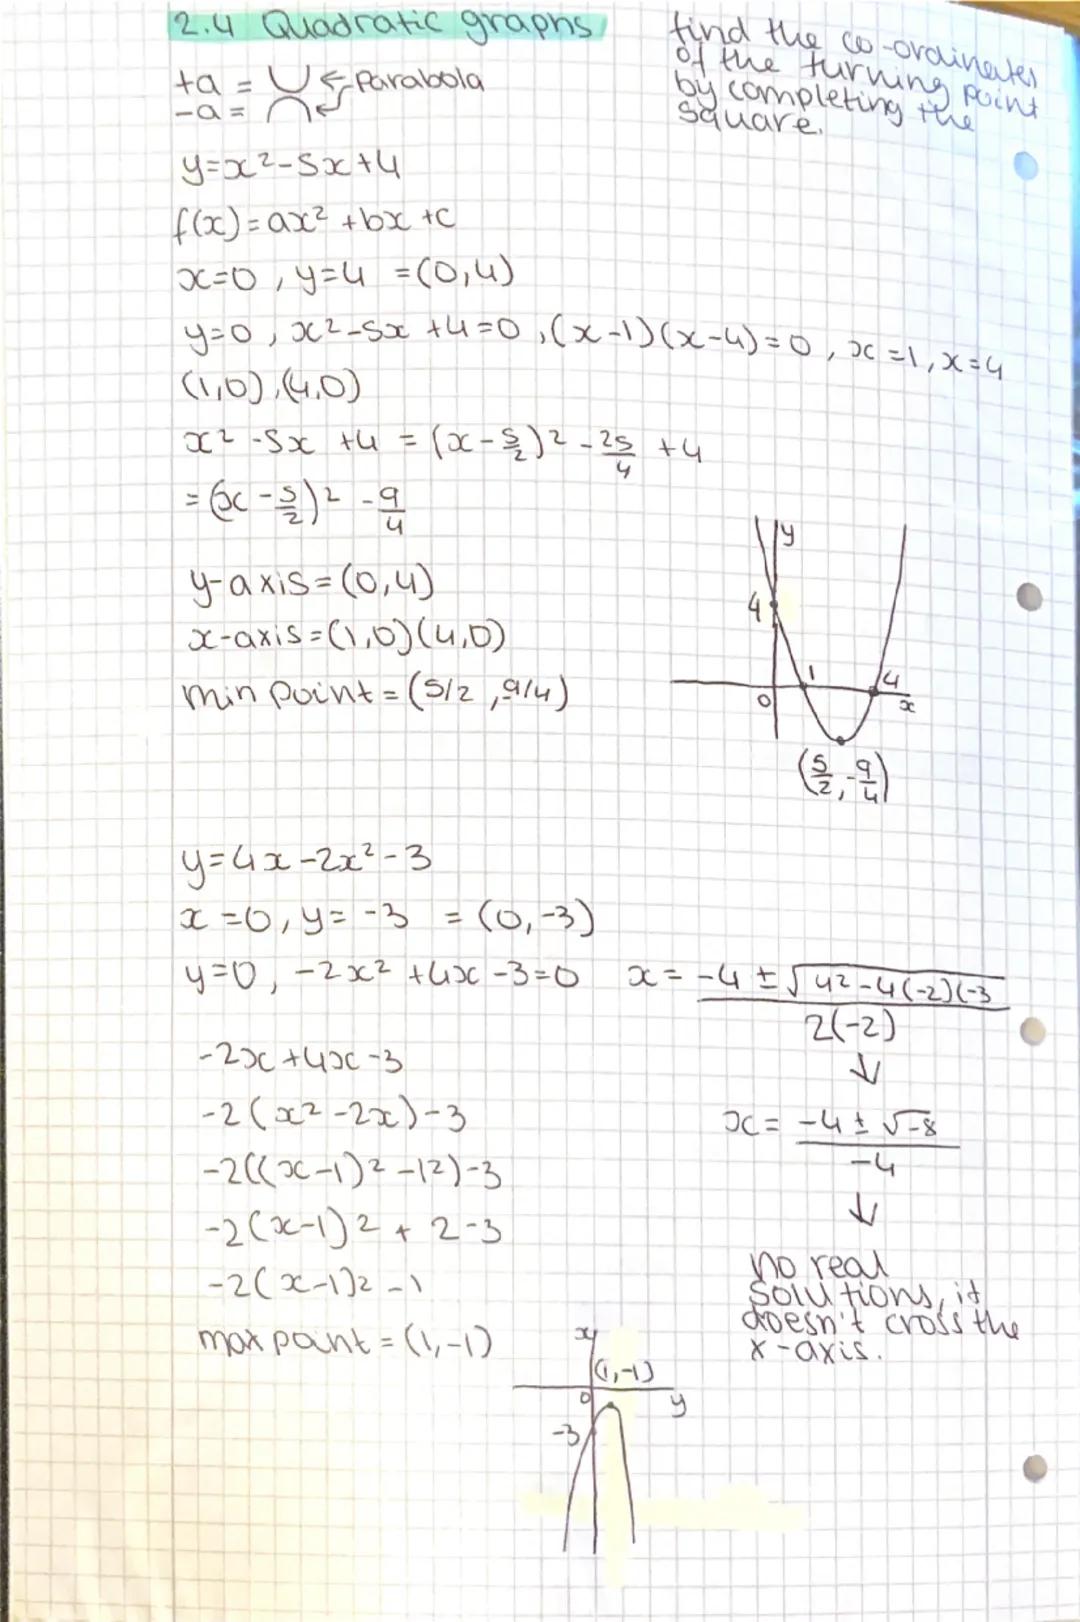 2.4 Quadratic graphs
find the co-ordinates
of the turning point
by completing the
square.
+a = ∪ ← parabola
-a = ∩ ←
y=x²-5x+4
f(x)=ax²+bx+c
x=0, y=4 =(0,4)
y=0, x²-5x+4=0, (x-1)(x-4)=0, x=1, x=4
(1,0),(4,0)
x²-5x+4 = (x-5/2)² - 25/4 + 4
=(x-5/2)² - 9/4
y-axis=(0,4)
x-axis=(1,0)(4,0)
min point=(5/2, 9/4)
y
4
1
4
0
x
(5/2, -9/4)
y=4x-2x²-3
x=0, y=-3 = (0,-3)
y=0, -2x²+4x-3=0
x = -4±√4²-4(-2)(-3
2(-2)
↓
x = -4±√-8
-4
↓
no real
solutions, it
doesn't cross the
x-axis.
-2x+4x-3
-2(x²-2x)-3
-2((x-1)²-1²)-3
-2(x-1)²+2-3
-2(x-1)²-1
max point=(1,-1)
x
(1,-1)
0
y
-3